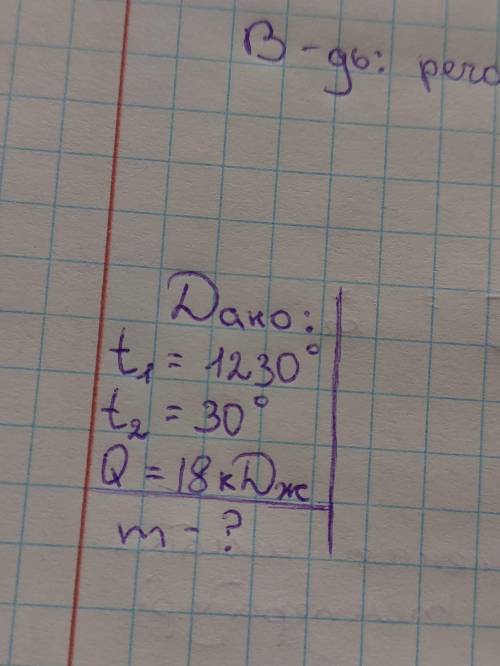 В-дь:
Дано:
t₁ = 1230°
t₂ = 30°
Q = 18 кДж
m - ?